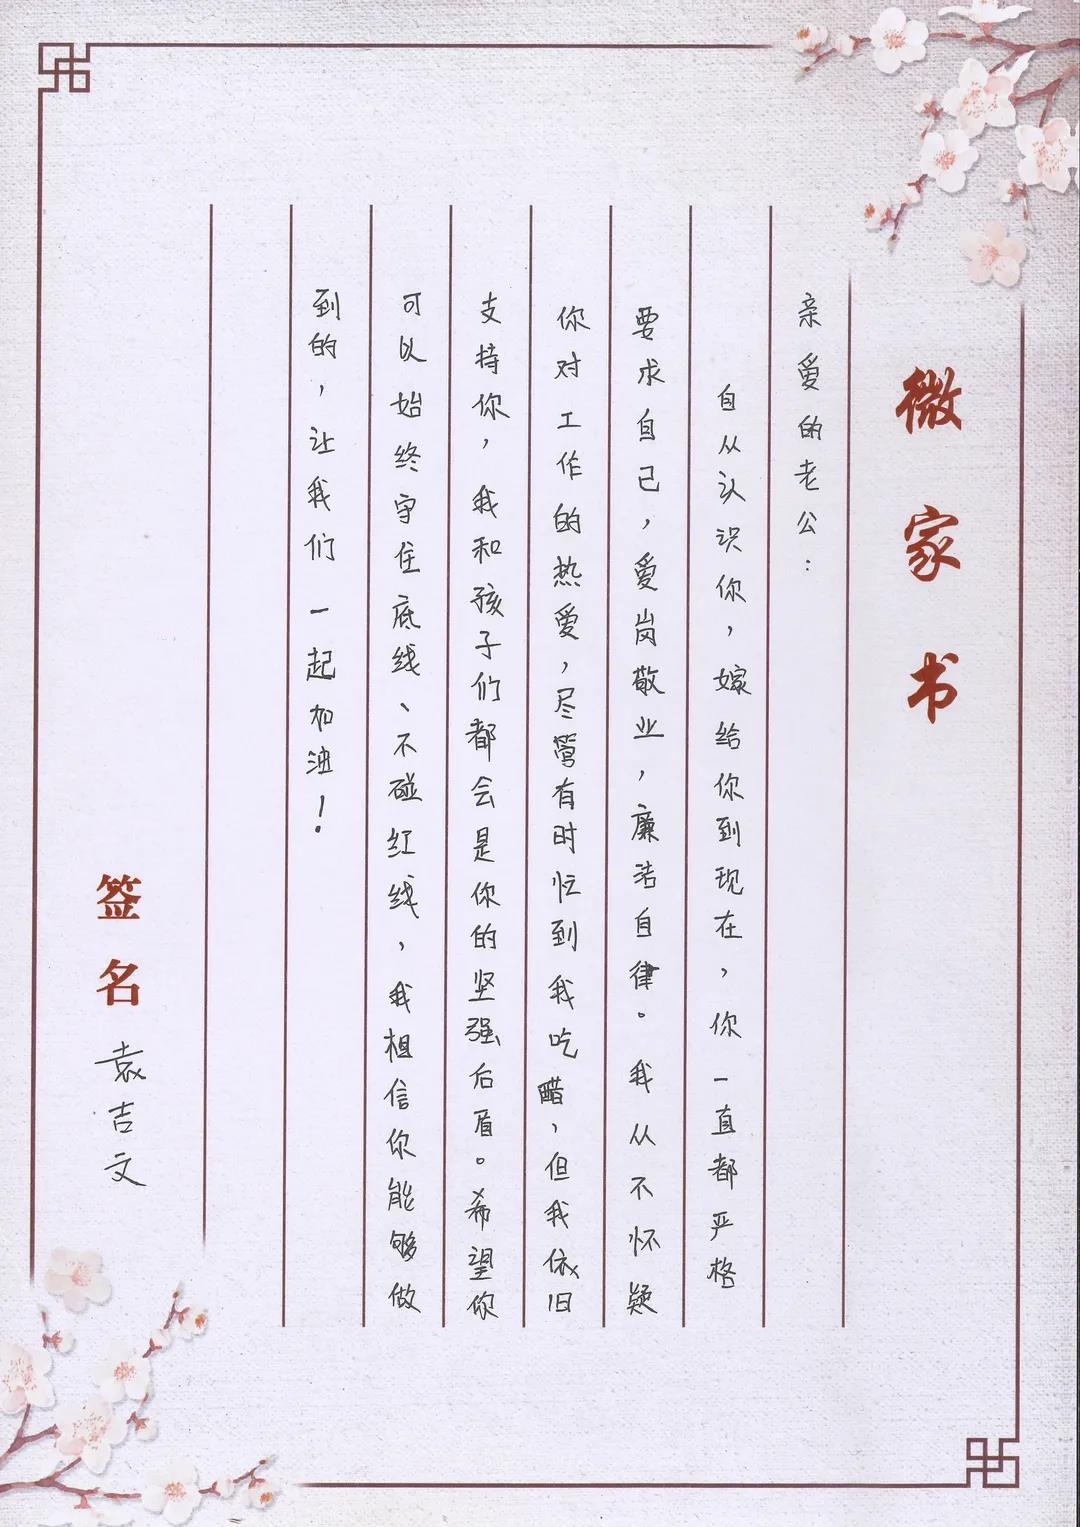 微家书
亲爱的老公：
自从认识你，嫁给你到现在，你一直都严格
要求自己，爱岗敬业，廉洁自律。我从不怀疑
你对工作的热爱，尽管有时忙到我吃醋，但我依旧
支持你，我和孩子们都会是你的坚强后盾。希望你
可以始终守住底线、不碰红线，我相信你能够做
到的，让我们一起加油！
签名 袁吉文